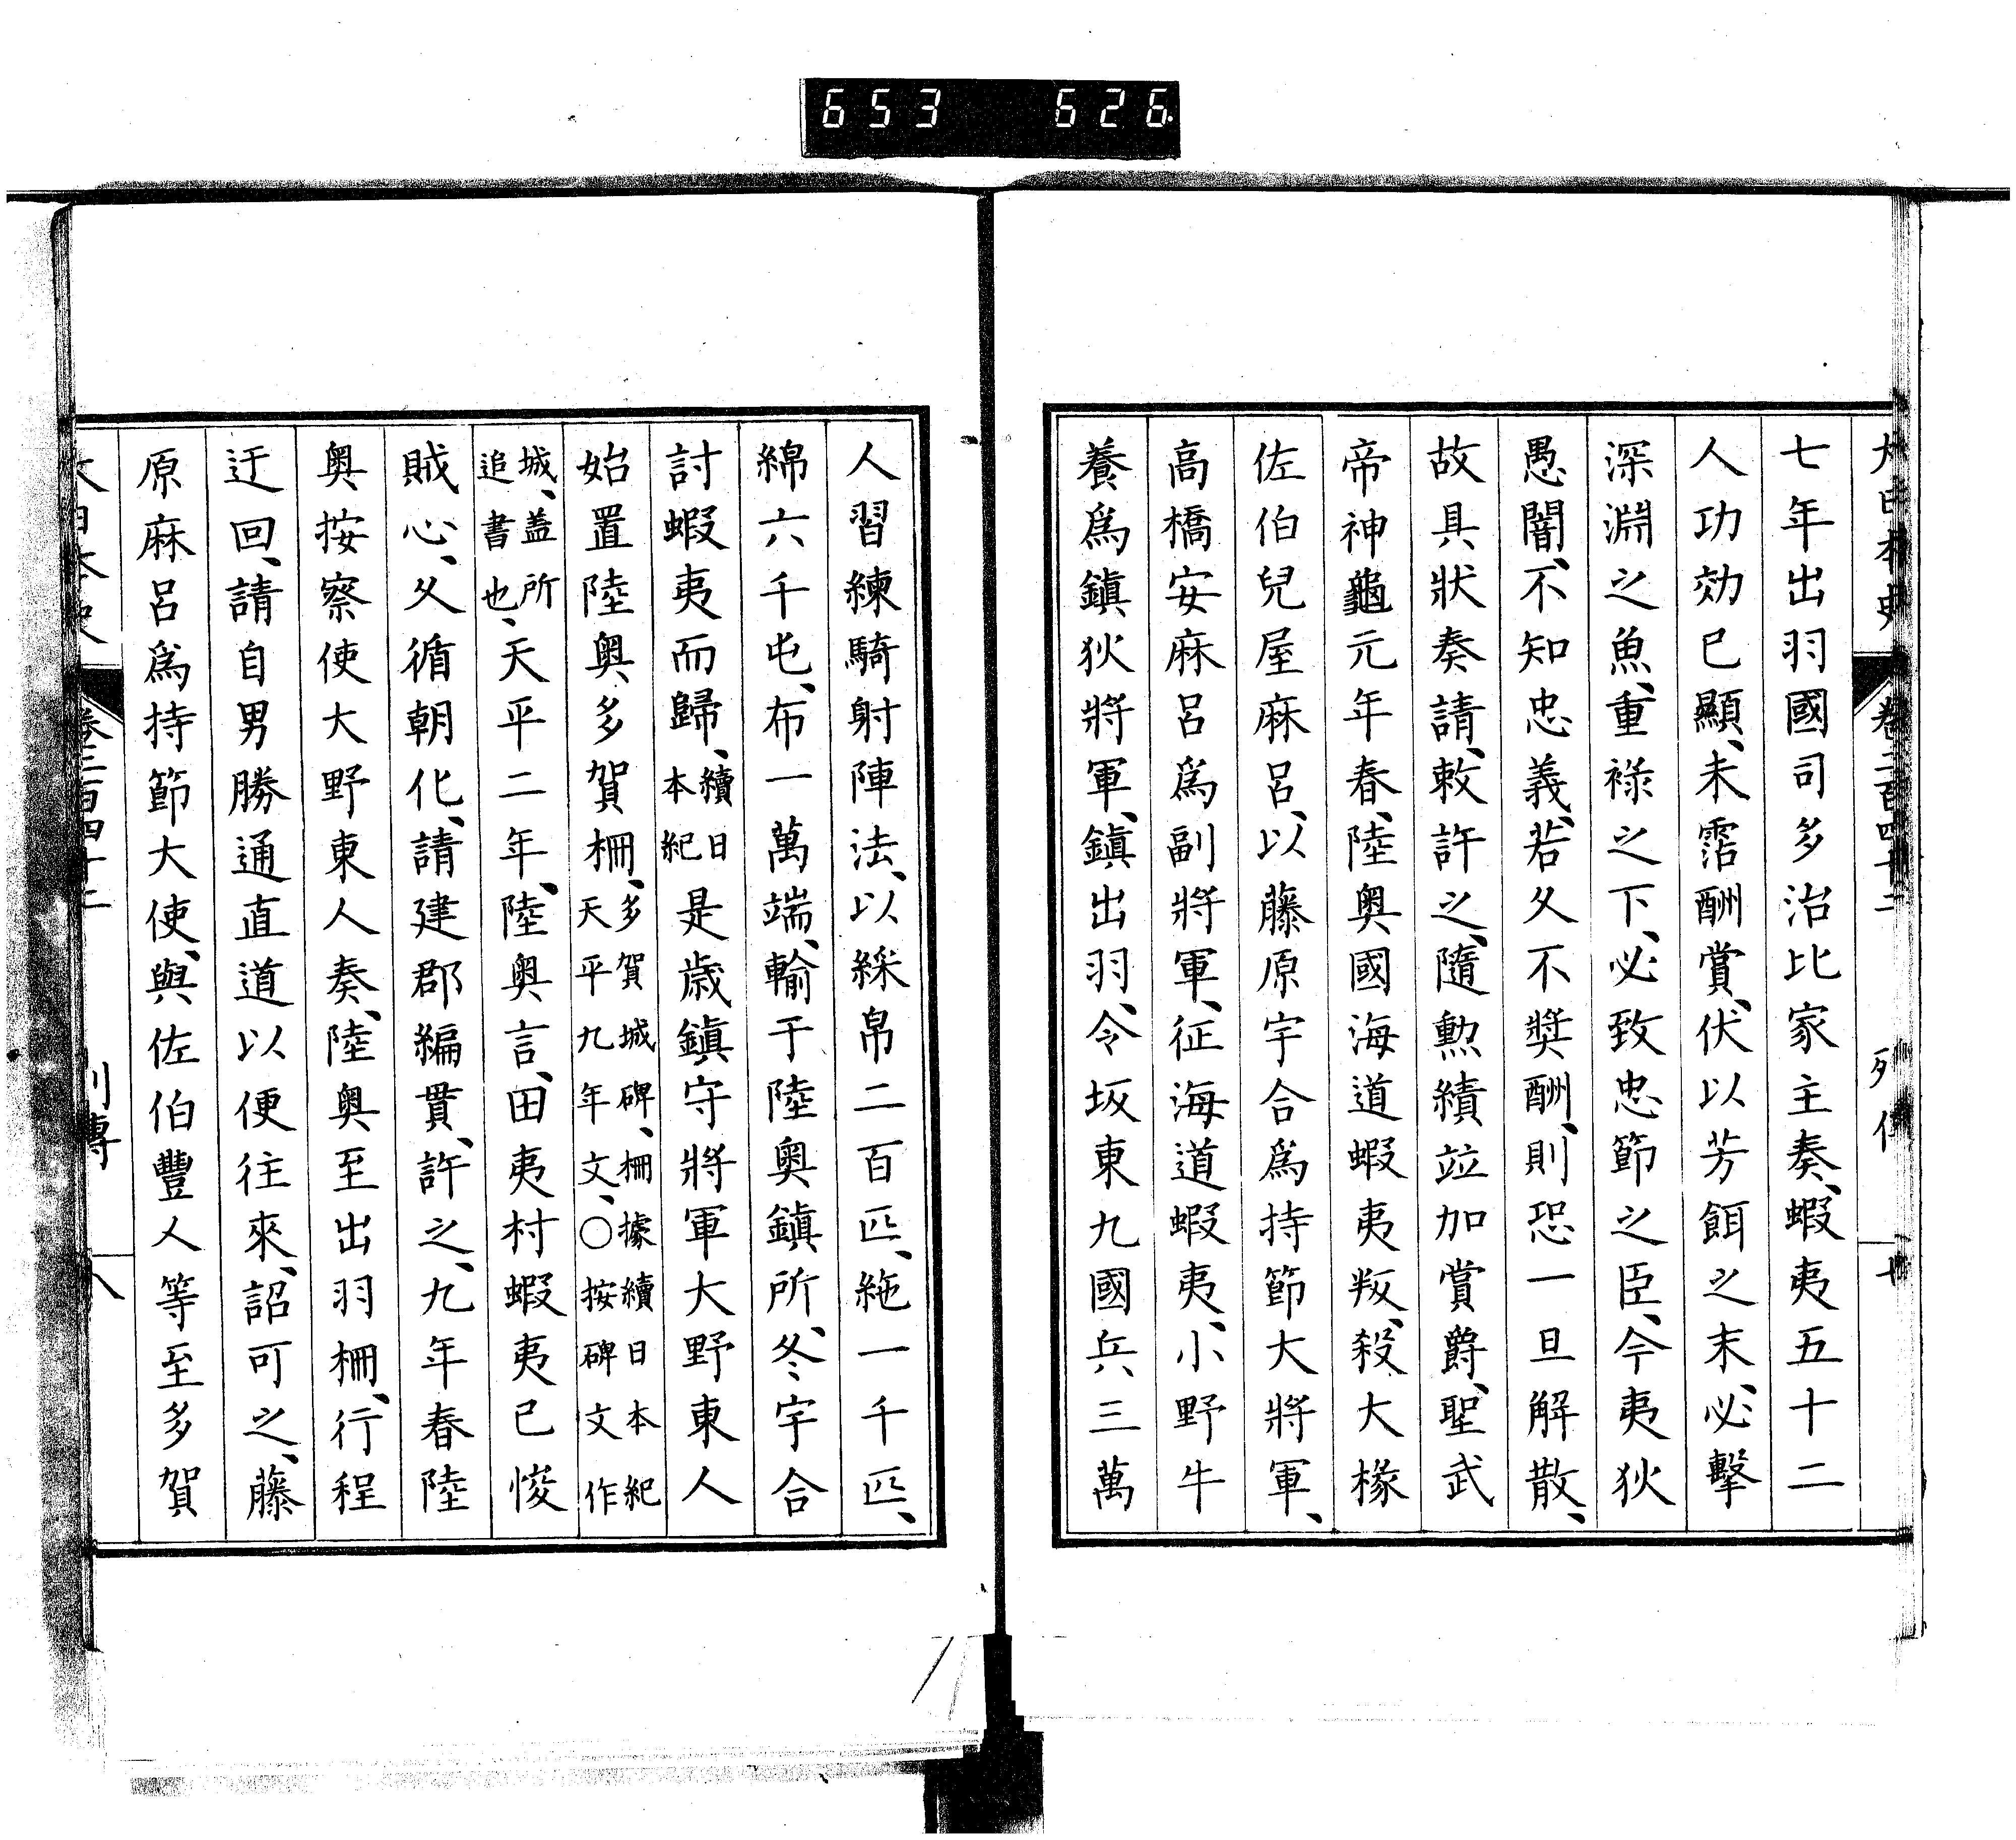 653 626
七年出羽國司多治比家主奏、蝦夷五十二
人功効已顯、未霑酬賞、伏以芳餌之末、必擊
深淵之魚、重祿之下、必致忠節之臣、今夷狄
愚闇、不知忠義、若久不奬酬、則恐一旦解散、
故具狀奏請、敕許之、隨勲績竝加賞爵、聖武
帝神龜元年春、陸奥國海道蝦夷叛、殺大椽
佐伯兒屋麻呂、以藤原宇合爲持節大將軍、
高橋安麻呂爲副將軍、征海道蝦夷、小野牛
養爲鎭狄將軍、鎭出羽、令坂東九國兵三萬
人習練騎射陣法、以綵帛二百匹、絁一千匹、
綿六千屯、布一萬端、輸于陸奥鎭所、冬宇合
討蝦夷而歸、續日本紀是歳鎭守將軍大野東人
始置陸奥多賀柵、多賀城碑、柵據續日本紀天平九年文、〇按碑文作
城、盖所追書也、天平二年、陸奥言、田夷村蝦夷已悛
賊心、久循朝化、請建郡編貫、許之、九年春陸
奥按察使大野東人奏、陸奥至出羽柵、行程
迂回、請自男勝通直道以便往來、詔可之、藤
原麻呂爲持節大使、與佐伯豐人等至多賀